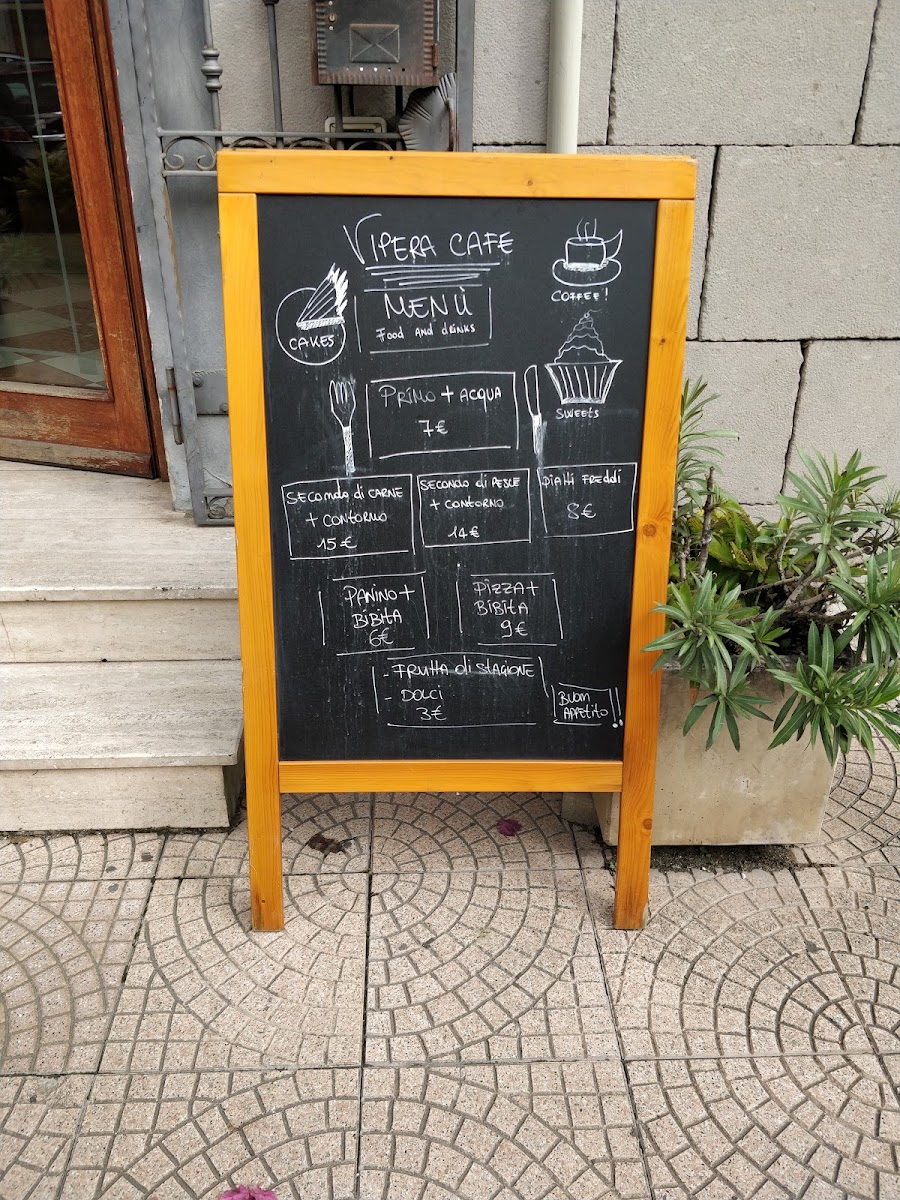 VIPERA CAFE
MENÙ
Food AND dRiNKS
CAKES
COFFEE!
SWEETS
PRIMO + ACQUA
7€
SECONDO di CARNE
+ CONTORNO
15€
SECONDO di PESCE
+ CONTORNO
14€
PIATTI FREDDI
8€
PANINO +
BIBITA
6€
PIZZA +
BIBITA
9€
- FRUTTA di STAGIONE
- DOLCI
3€
BUON
APPETITO!!